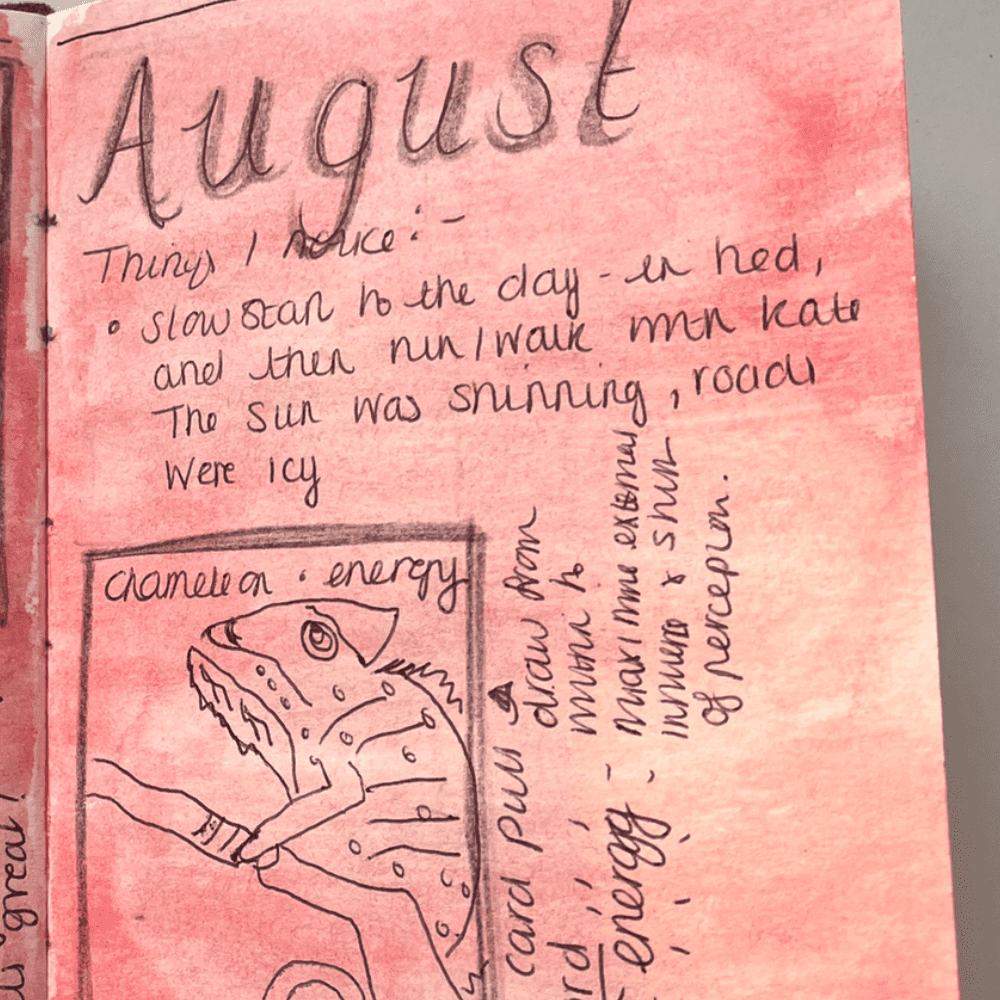 August
Things I notice :-
• slow start to the day - in bed,
and then run/walk with Kate
The sun was shinning, roads
were icy
chameleon • energy
card pull
draw from
within to
maximine external
& shift
of perception.
energy -
great!